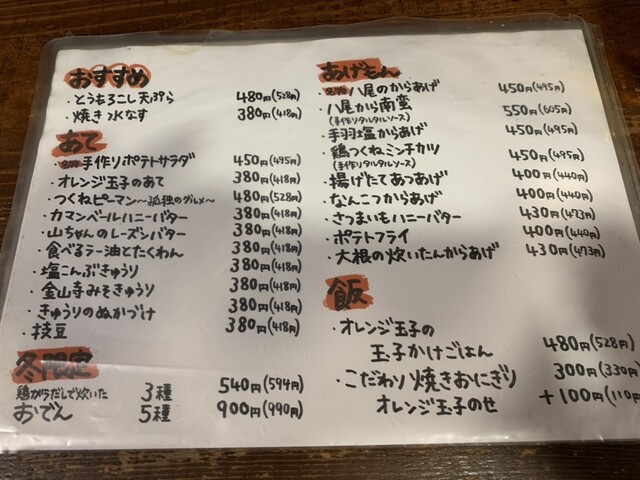 おすすめ
・とうもろこし天ぷら 480円(528円)
・焼き水なす 380円(418円)
あて
・名物手作りポテトサラダ 450円(495円)
・オレンジ玉子のあて 380円(418円)
・つくねピーマン〜孤独のグルメ〜 480円(528円)
・カマンベールハニーバター 380円(418円)
・山ちゃんのレーズンバター 380円(418円)
・食べるラー油とたくわん 380円(418円)
・塩こんぶきゅうり 380円(418円)
・金山寺みそきゅうり 380円(418円)
・きゅうりのぬかづけ 380円(418円)
・枝豆 380円(418円)
冬限定
鶏がらだしで炊いた 3種 540円(594円)
おでん 5種 900円(990円)
あげもん
・名物八尾のからあげ 450円(495円)
・八尾から南蛮 550円(605円)
(手作りタルタルソース)
・手羽塩からあげ 450円(495円)
・鶏つくねミンチカツ 450円(495円)
(手作りタルタルソース)
・揚げたてあつあげ 400円(440円)
・なんこつからあげ 400円(440円)
・さつまいもハニーバター 430円(473円)
・ポテトフライ 400円(440円)
・大根の炊いたんからあげ 430円(473円)
飯
・オレンジ玉子の
玉子かけごはん 480円(528円)
・こだわり焼きおにぎり 300円(330円)
オレンジ玉子のせ +100円(110円